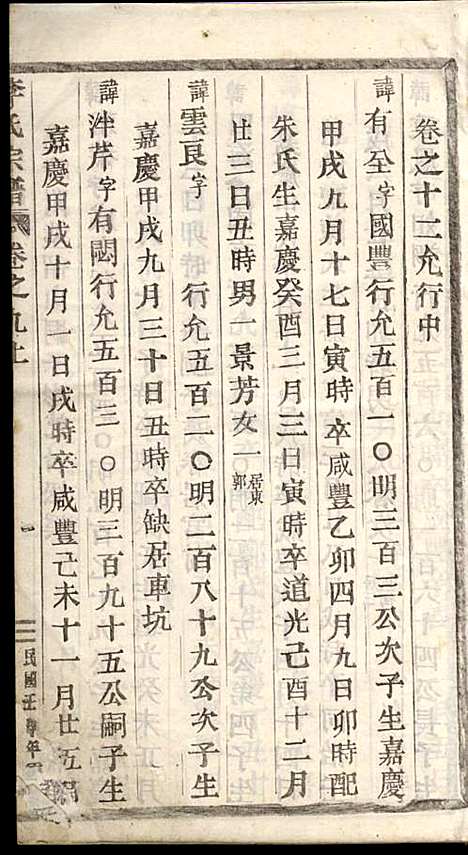 卷之十二允行中
諱有全字國豐行允五百一〇明三百三公次子生嘉慶
甲戌九月十七日寅時卒咸豐乙卯四月九日卯時配
朱氏生嘉慶癸酉三月三日寅時卒道光己酉十二月
廿三日丑時男一景芳女一居東郭
諱雲良字行允五百二〇明二百八十九公次子生
嘉慶甲戌九月三十日丑時卒缺居車坑
諱泮芹字有閟行允五百三〇明三百九十五公嗣子生
嘉慶甲戌十月一日戌時卒咸豐己未十一月廿五
李氏宗譜 卷之九上
一
民國壬年